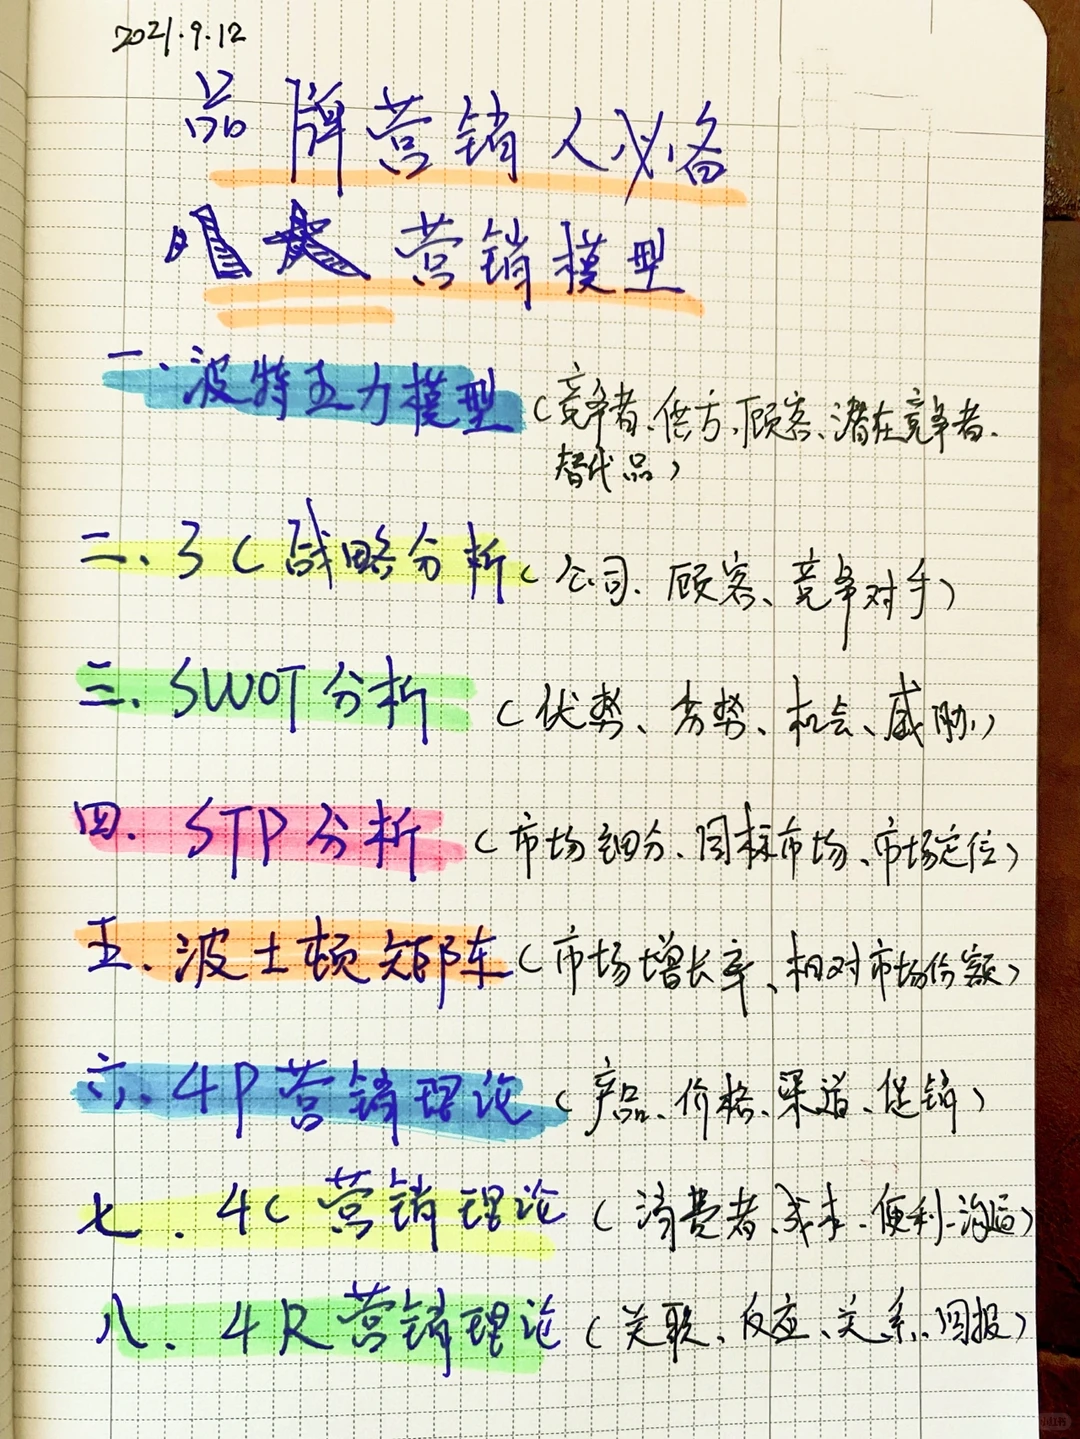 2021.9.12
品牌营销人必备
八大营销模型
一、波特五力模型（竞争者、供方、顾客、潜在竞争者、
替代品）
二、3C战略分析（公司、顾客、竞争对手）
三、SWOT分析（优势、劣势、机会、威胁）
四、STP分析（市场细分、目标市场、市场定位）
五、波士顿矩阵（市场增长率、相对市场份额）
六、4P营销理论（产品、价格、渠道、促销）
七、4C营销理论（消费者、成本、便利、沟通）
八、4R营销理论（关联、反应、关系、回报）
小红书